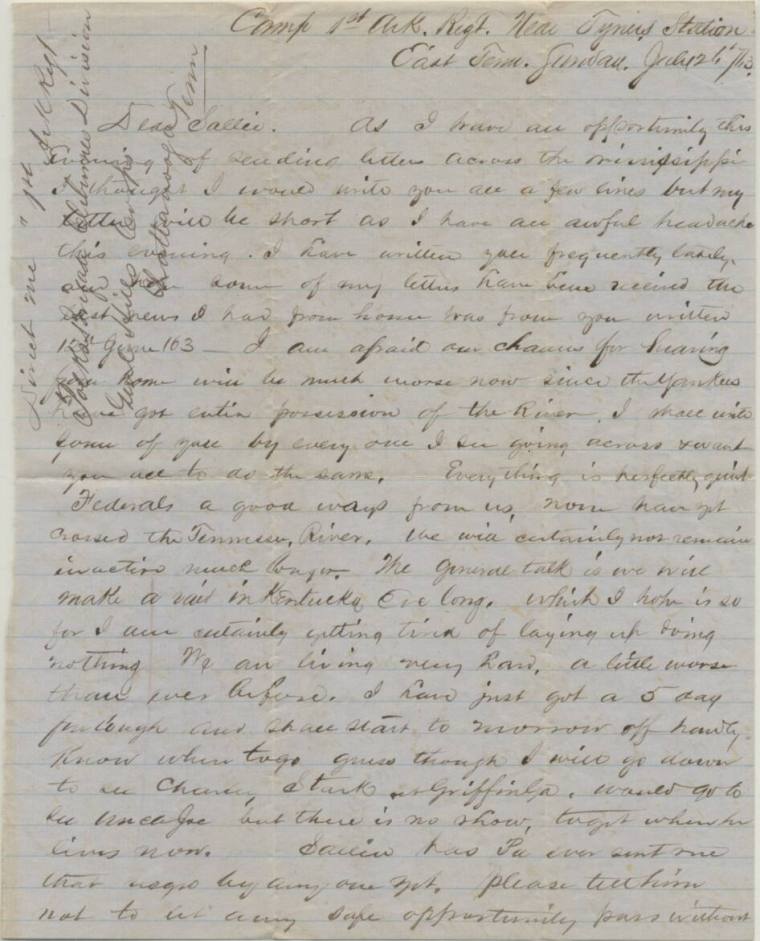 Camp 1st Ark. Regt. Near Tyners Station
East Tenn. Sunday. July 26th /63.
Dear Sallie. As I have an opportunity this
evening of sending letters across the Mississippi
I thought I would write you all a few lines but my
letter will be short as I have an awful headache
this evening. I have written you frequently lately.
some of my letters have been received the
last news I had from home was from you written
12 June /63 — I am afraid our chances for hearing
from home will be much worse now since the Yankees
have got entire possession of the River. I shall write
some of you by every one I see going across & want
you all to do the same. Everything is perfectly quiet
Federals a good ways from us, none have yet
crossed the Tennessee River. We will certainly not remain
inactive much longer. The general talk is we will
make a raid in Kentucky Ere long. which I hope is so
for I am certainly getting tired of laying up doing
nothing We are living very hard, a little worse
than ever before. I have just got a 5 day
furlough and shall start to morrow off hardly
know where to go guess though I will go down
to see Charley Stark at Griffin Ga. would go to
see Uncle Joe but there is no show, to get where he
lives now. Sallie has Pa ever sent me
that negro by any one yet. please tell him
not to let any safe opportunity pass without
Direct me " 1st Ark Regt
Polks Brigade Cleburnes Division
Genl Hills Corps
Chattanooga
Tenn